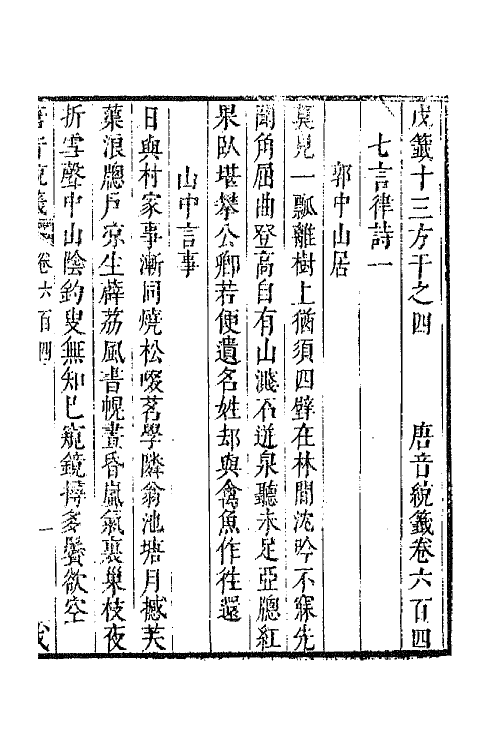 戊籤十三方干之四 唐音統籤卷六百四
七言律詩一
郭中山居
莫見一瓢離樹上猶須四壁在林間沈吟不寐先
聞角屈曲登高自有山濺石迸泉聽未足亞牕紅
果臥堪攀公卿若便遺名姓却與禽魚作往還
山中言事
日與村家事漸同燒松啜茗學鄰翁池塘月撼芙
蕖浪牕戶凉生薜荔風書幌晝昏嵐氣裏巢枝夜
折雪聲中山陰釣叟無知己窺鏡撏多鬢欲空
唐音統籤 卷六百四 一 戊